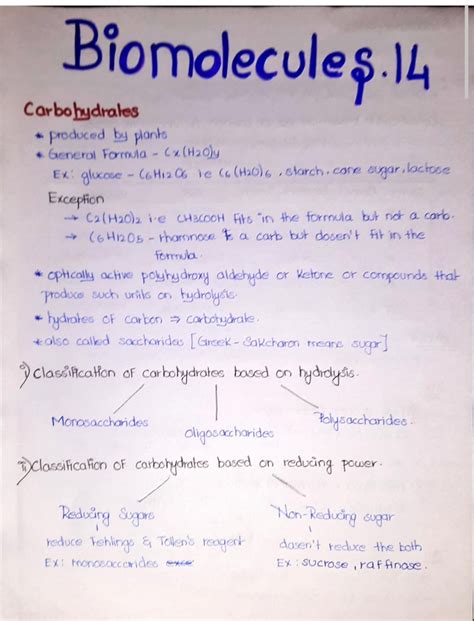 Biomolecules.14
Carbohydrates
* produced by plants
* General Formula - Cx(H2O)y
Ex: glucose - C6H12O6 ie C6(H2O)6, starch, cane sugar, lactose
Exception
→ C2(H2O)2 i.e CH3COOH fits in the formula but not a carb.
→ C6H12O5 - rhamnose is a carb but dosen't fit in the
formula.
* optically active polyhydroxy aldehyde or ketone or compounds that
produce such units on hydrolysis.
* hydrates of carbon ⇒ carbohydrate.
* also called saccharides [Greek - Sakcharon means sugar]
i) Classification of carbohydrates based on hydrolysis.
Monosaccharides Oligosaccharides Polysaccharides.
ii) Classification of carbohydrates based on reducing power.
Reducing Sugars Non-Reducing sugar
reduce Fehlings & Tollen's reagent dosen't reduce the both
Ex: monosaccarides Ex: sucrose, raffinase.